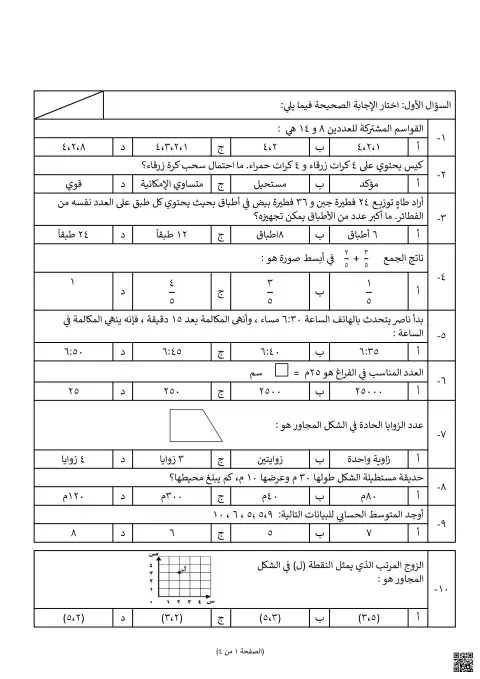 السؤال الأول: اختار الإجابة الصحيحة فيما يلي:
١- القواسم المشتركة للعددين ٨ و ١٤ هي :
أ ٤،٢،١ ب ٤،٢ ج ٤،٣،٢،١ د ٤،٢،٨
٢- كيس يحتوي على ٤ كرات زرقاء و ٤ كرات حمراء. ما احتمال سحب كرة زرقاء؟
أ مؤكد ب مستحيل ج متساوي الإمكانية د قوي
٣- أراد طاهٍ توزيع ٢٤ فطيرة جبن و ٣٦ فطيرة بيض في أطباق بحيث يحتوي كل طبق على العدد نفسه من
الفطائر. ما أكبر عدد من الأطباق يمكن تجهيزه؟
أ ٦ أطباق ب ٨اطباق ج ١٢ طبقاً د ٢٤ طبقاً
٤- ناتج الجمع ٣/٥ + ٢/٥ في أبسط صورة هو :
أ ١/٥ ب ٣/٥ ج ٤/٥ د ١
٥- بدأ ناصر يتحدث بالهاتف الساعة ٦:٣٠ مساء ، وأنهى المكالمة بعد ١٥ دقيقة ، فإنه ينهي المكالمة في
الساعة :
أ ٦:٣٥ ب ٦:٤٠ ج ٦:٤٥ د ٦:٥٠
٦- العدد المناسب في الفراغ هو ٢٥م = □ سم
أ ٢٥٠٠٠ ب ٢٥٠٠ ج ٢٥٠ د ٢٥
٧- عدد الزوايا الحادة في الشكل المجاور هو :
أ زاوية واحدة ب زوايتين ج ٣ زوايا د ٤ زوايا
٨- حديقة مستطيلة الشكل طولها ٣٠ م وعرضها ١٠ م، كم يبلغ محيطها؟
أ ٨٠م ب ٤٠م ج ٣٠٠م د ١٢٠م
٩- أوجد المتوسط الحسابي للبيانات التالية: ٩ ،٥ ،٥ ، ٦ ، ١٠
أ ٧ ب ٥ ج ٦ د ٨
١٠- الزوج المرتب الذي يمثل النقطة (ل) في الشكل
المجاور هو :
ص
٤
٣ ل
٢
١
٠ ١ ٢ ٣ ٤ ٥ س
أ (٣،٥) ب (٥،٣) ج (٣،٢) د (٥،٢)
(الصفحة ١ من ٤)